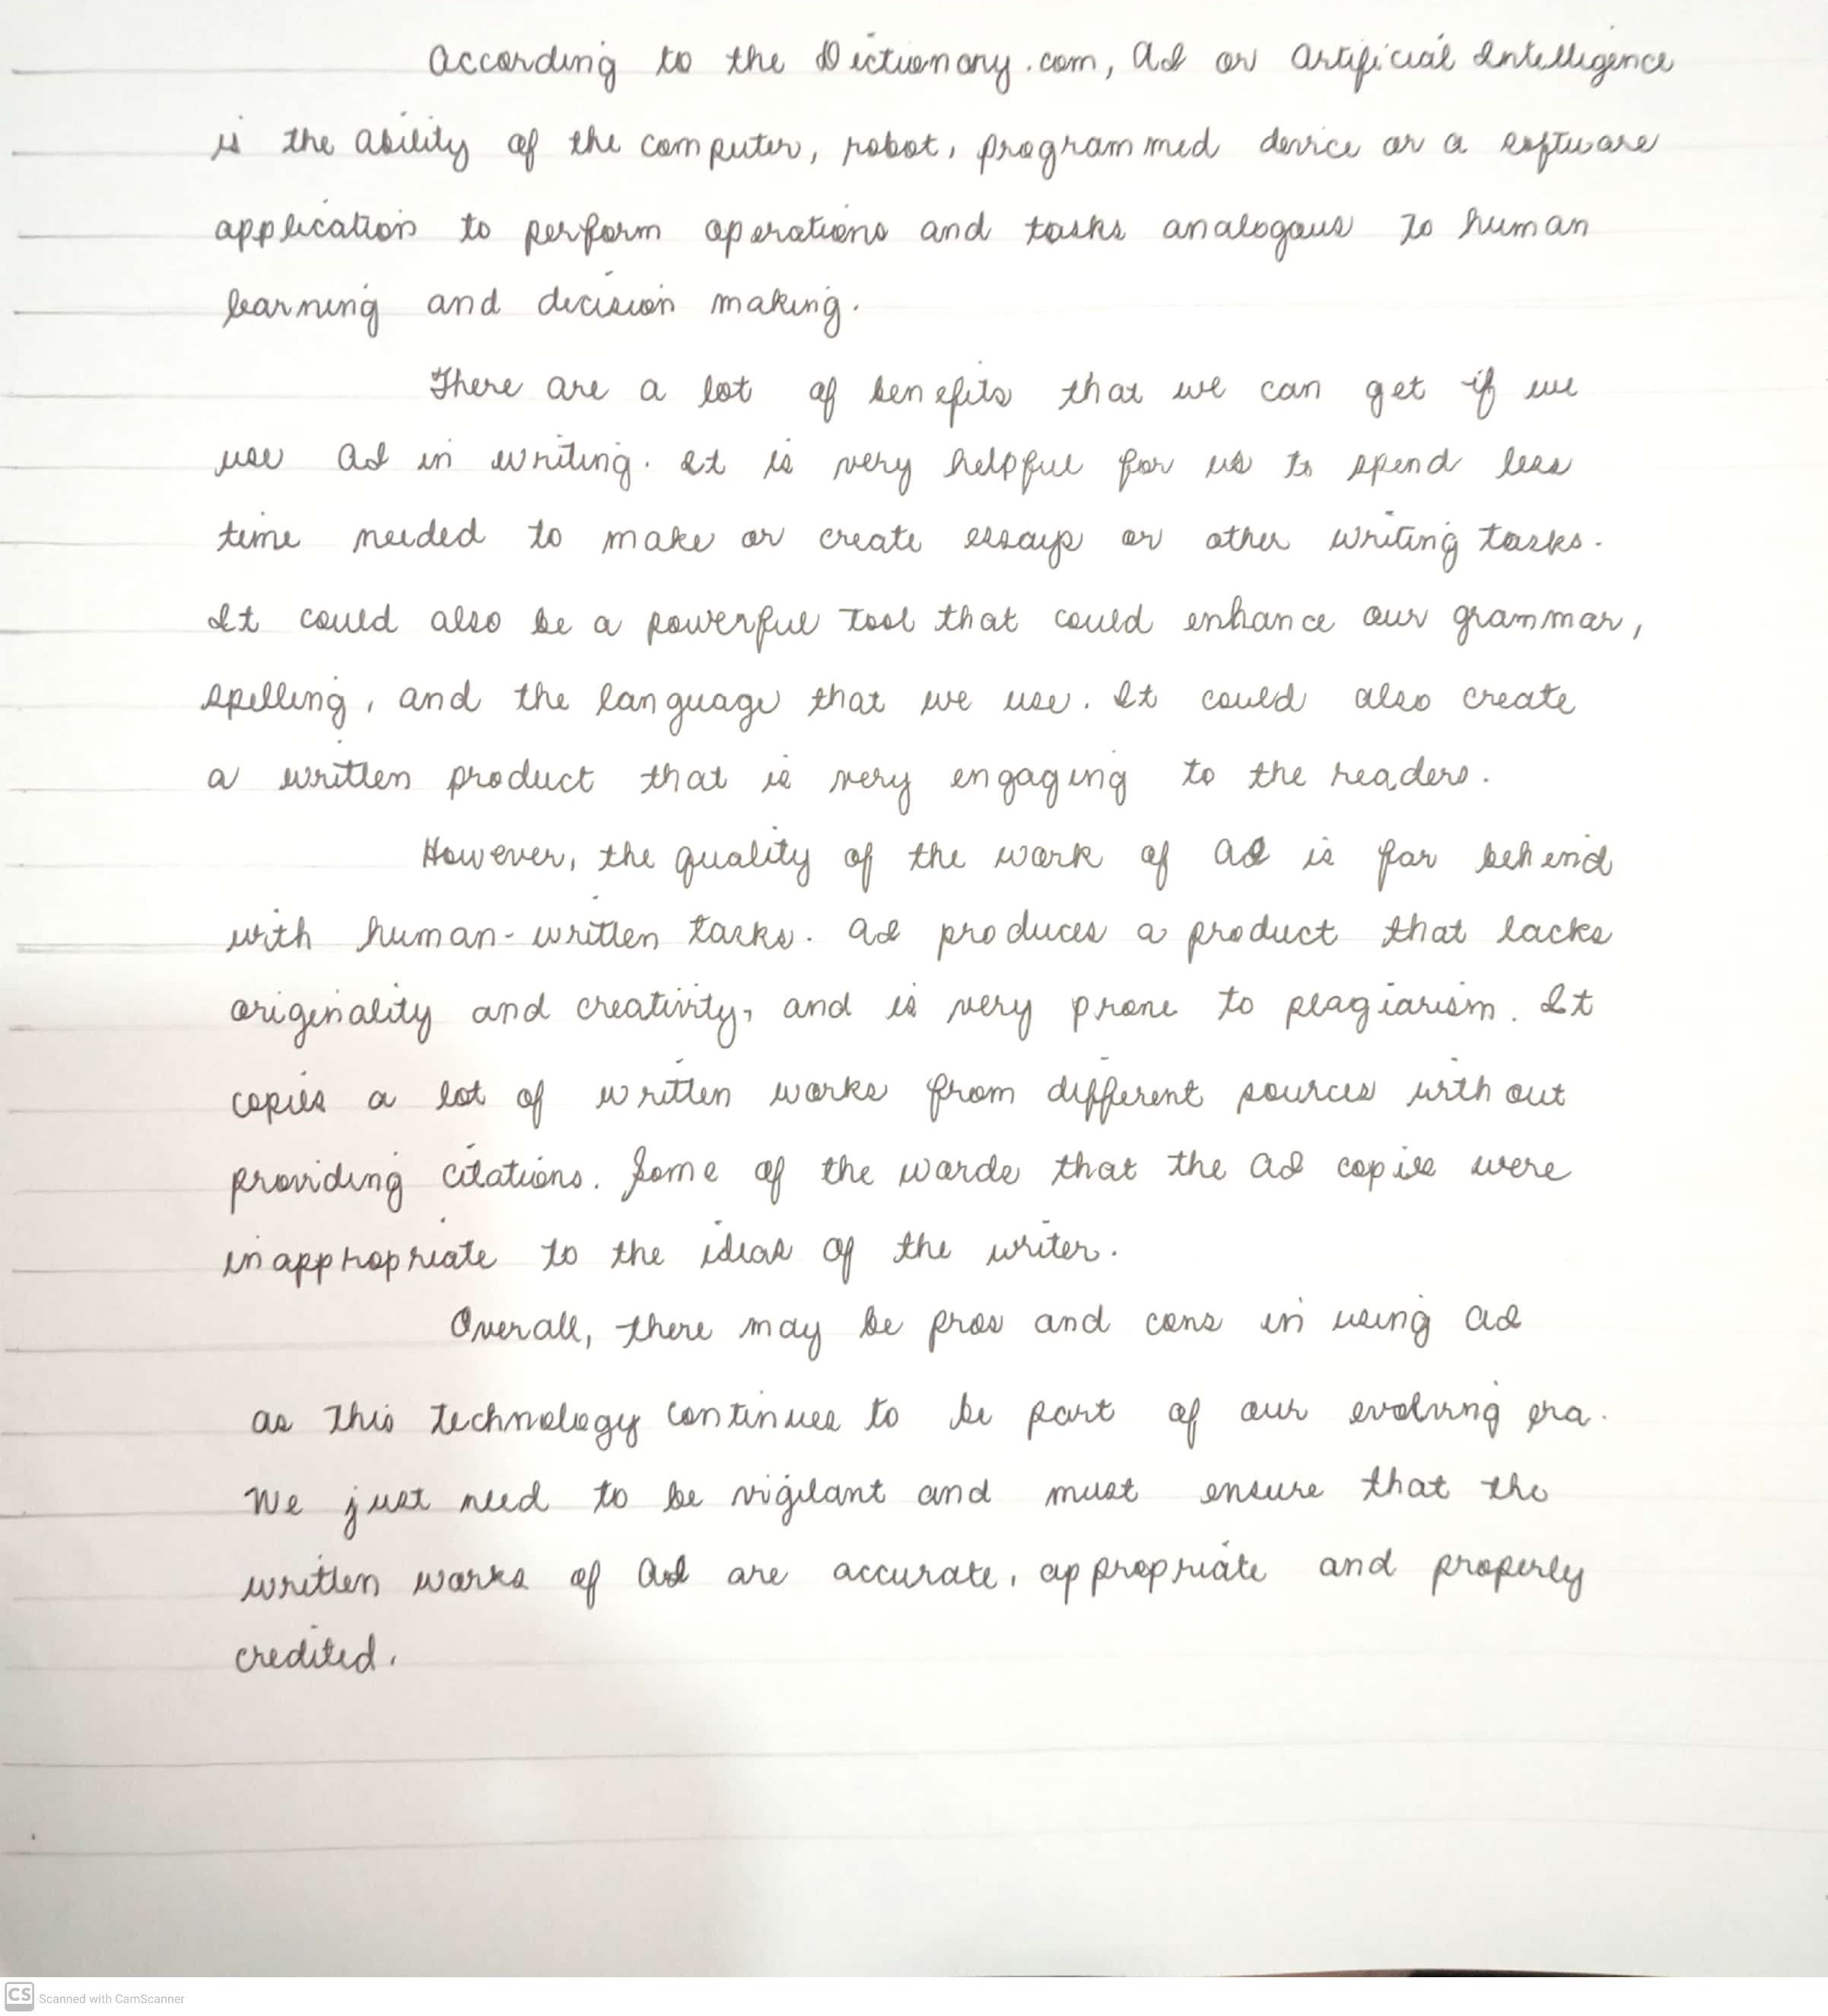 According to the Dictionary.com, AI or Artificial Intelligence
is the ability of the computer, robot, programmed device or a software
application to perform operations and tasks analogous to human
learning and decision making.
There are a lot of benefits that we can get if we
use AI in writing. It is very helpful for us to spend less
time needed to make or create essays or other writing tasks.
It could also be a powerful tool that could enhance our grammar,
spelling, and the language that we use. It could also create
a written product that is very engaging to the readers.
However, the quality of the work of AI is far behind
with human-written tasks. AI produces a product that lacks
originality and creativity, and is very prone to plagiarism. It
copies a lot of written works from different sources without
providing citations. Some of the words that the AI copies were
inappropriate to the ideas of the writer.
Overall, there may be pros and cons in using AI
as this technology continues to be part of our evolving era.
We just need to be vigilant and must ensure that the
written works of AI are accurate, appropriate and properly
credited.
CS Scanned with CamScanner